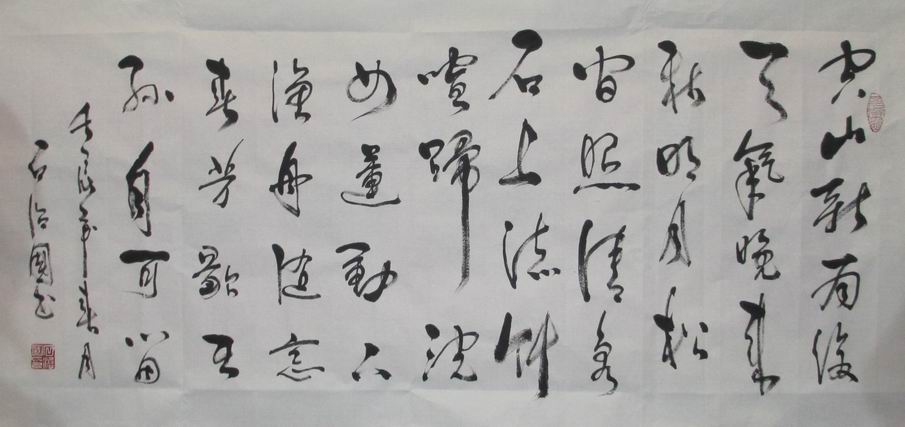 空山新雨後
天氣晚來
秋明月松
間照清泉
石上流竹
喧歸浣
女蓮動下
漁舟隨意
春芳歇王
孫自可留
壬辰年春月
石治國书